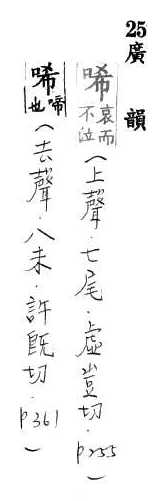 25廣韻
唏哀而不泣(上聲.七尾.虛豈切.p255)
唏啼也(去聲.八未.許旣切.p361)